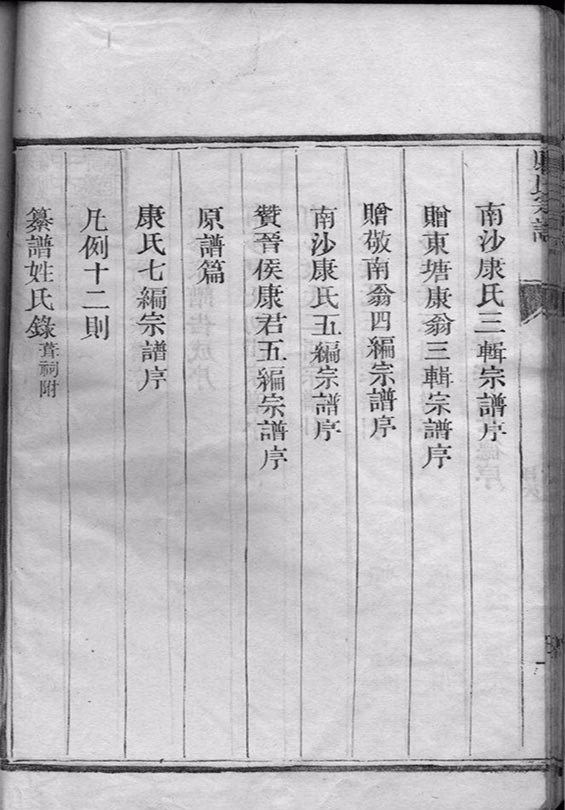 康氏宗譜
南沙康氏三輯宗譜序
贈東塘康翁三輯宗譜序
贈敬南翁四編宗譜序
南沙康氏五編宗譜序
贊晉侯康君五編宗譜序
原譜篇
康氏七編宗譜序
凡例十二則
纂譜姓氏錄 葺祠附